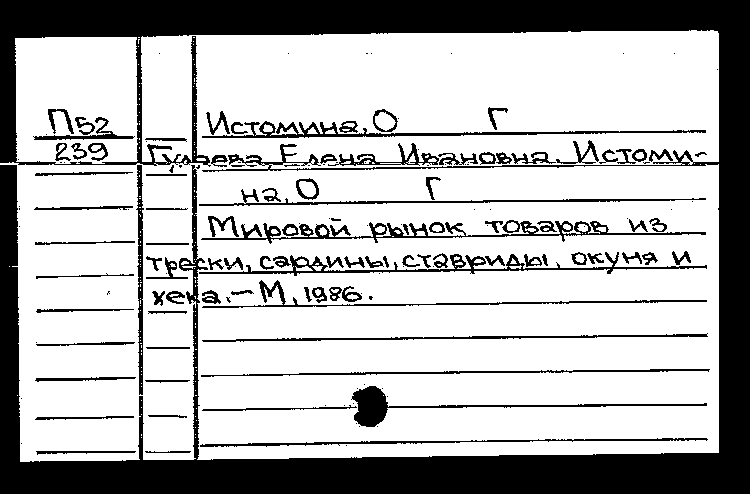 П52 Истомина, О Г
239 Гуляева, Елена Ивановна. Истоми-
на, О Г
Мировой рынок товаров из
трески, сардины, ставриды, окуня и
хека. - М, 1986.